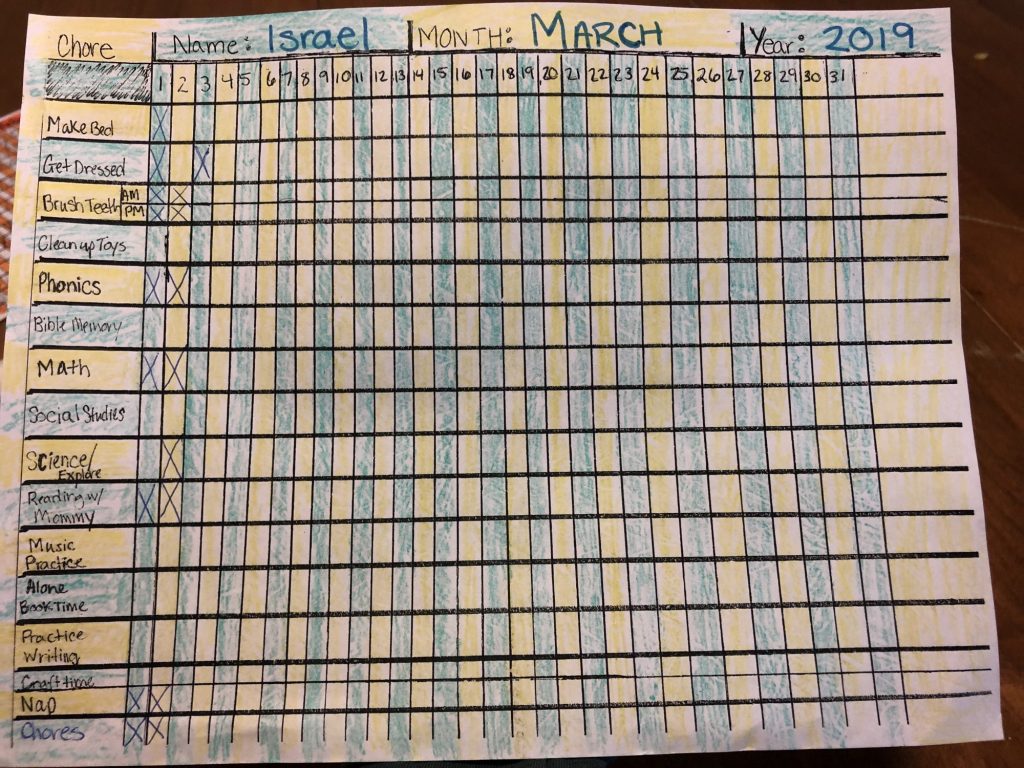 Chore Name: Israel MONTH: MARCH Year: 2019
1 2 3 4 5 6 7 8 9 10 11 12 13 14 15 16 17 18 19 20 21 22 23 24 25 26 27 28 29 30 31
Make Bed
Get Dressed
Brush Teeth AM
PM
Clean up Toys
Phonics
Bible Memory
Math
Social Studies
Science/
Explore
Reading w/
Mommy
Music
Practice
Alone
Book Time
Practice
Writing
Craft time
Nap
Chores